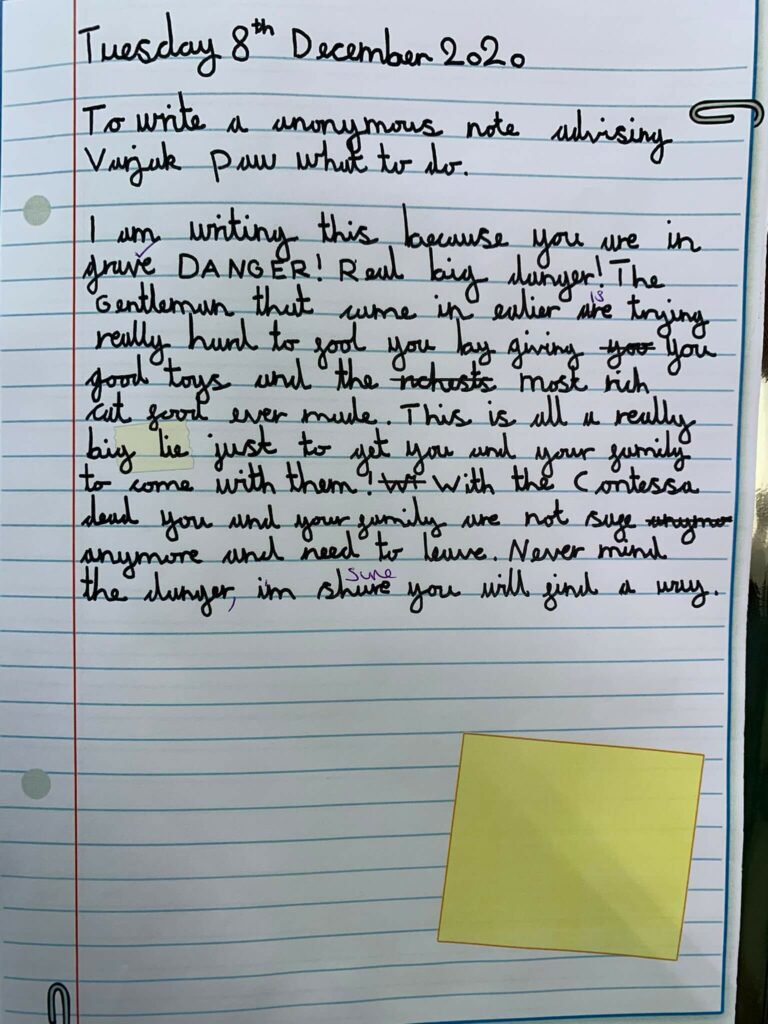 Tuesday 8th December 2020
To write a anonymous note advising
Varjak Paw what to do.
I am writing this because you are in
grave DANGER! Real big danger! The
Gentleman that came in ealier are is trying
really hard to fool you by giving you you
good toys and the richests most rich
cat food ever made. This is all a really
big lie just to get you and your family
to come with them! Wt With the Contessa
dead you and your family are not safe anymo
anymore and need to leave. Never mind
the danger, i'm shure sure you will find a way.